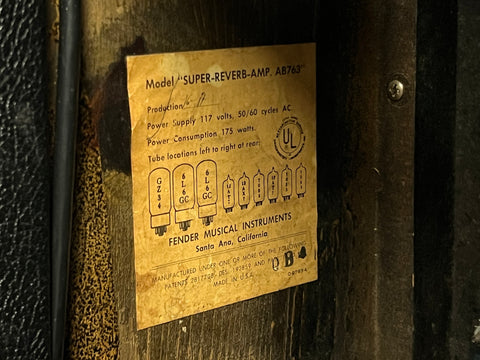 Model "SUPER-REVERB-AMP. AB763"
Production
Power Supply 117 volts, 50/60 cycles AC.
Power Consumption 175 watts.
Tube locations left to right at rear:
UL
GZ34
6L6GC
6L6GC
FENDER MUSICAL INSTRUMENTS
Santa Ana, California
MANUFACTURED UNDER ONE OR MORE OF THE FOLLOWING
PATENTS 2817708 DES. 192859 AND
MADE IN U.S.A.
QB